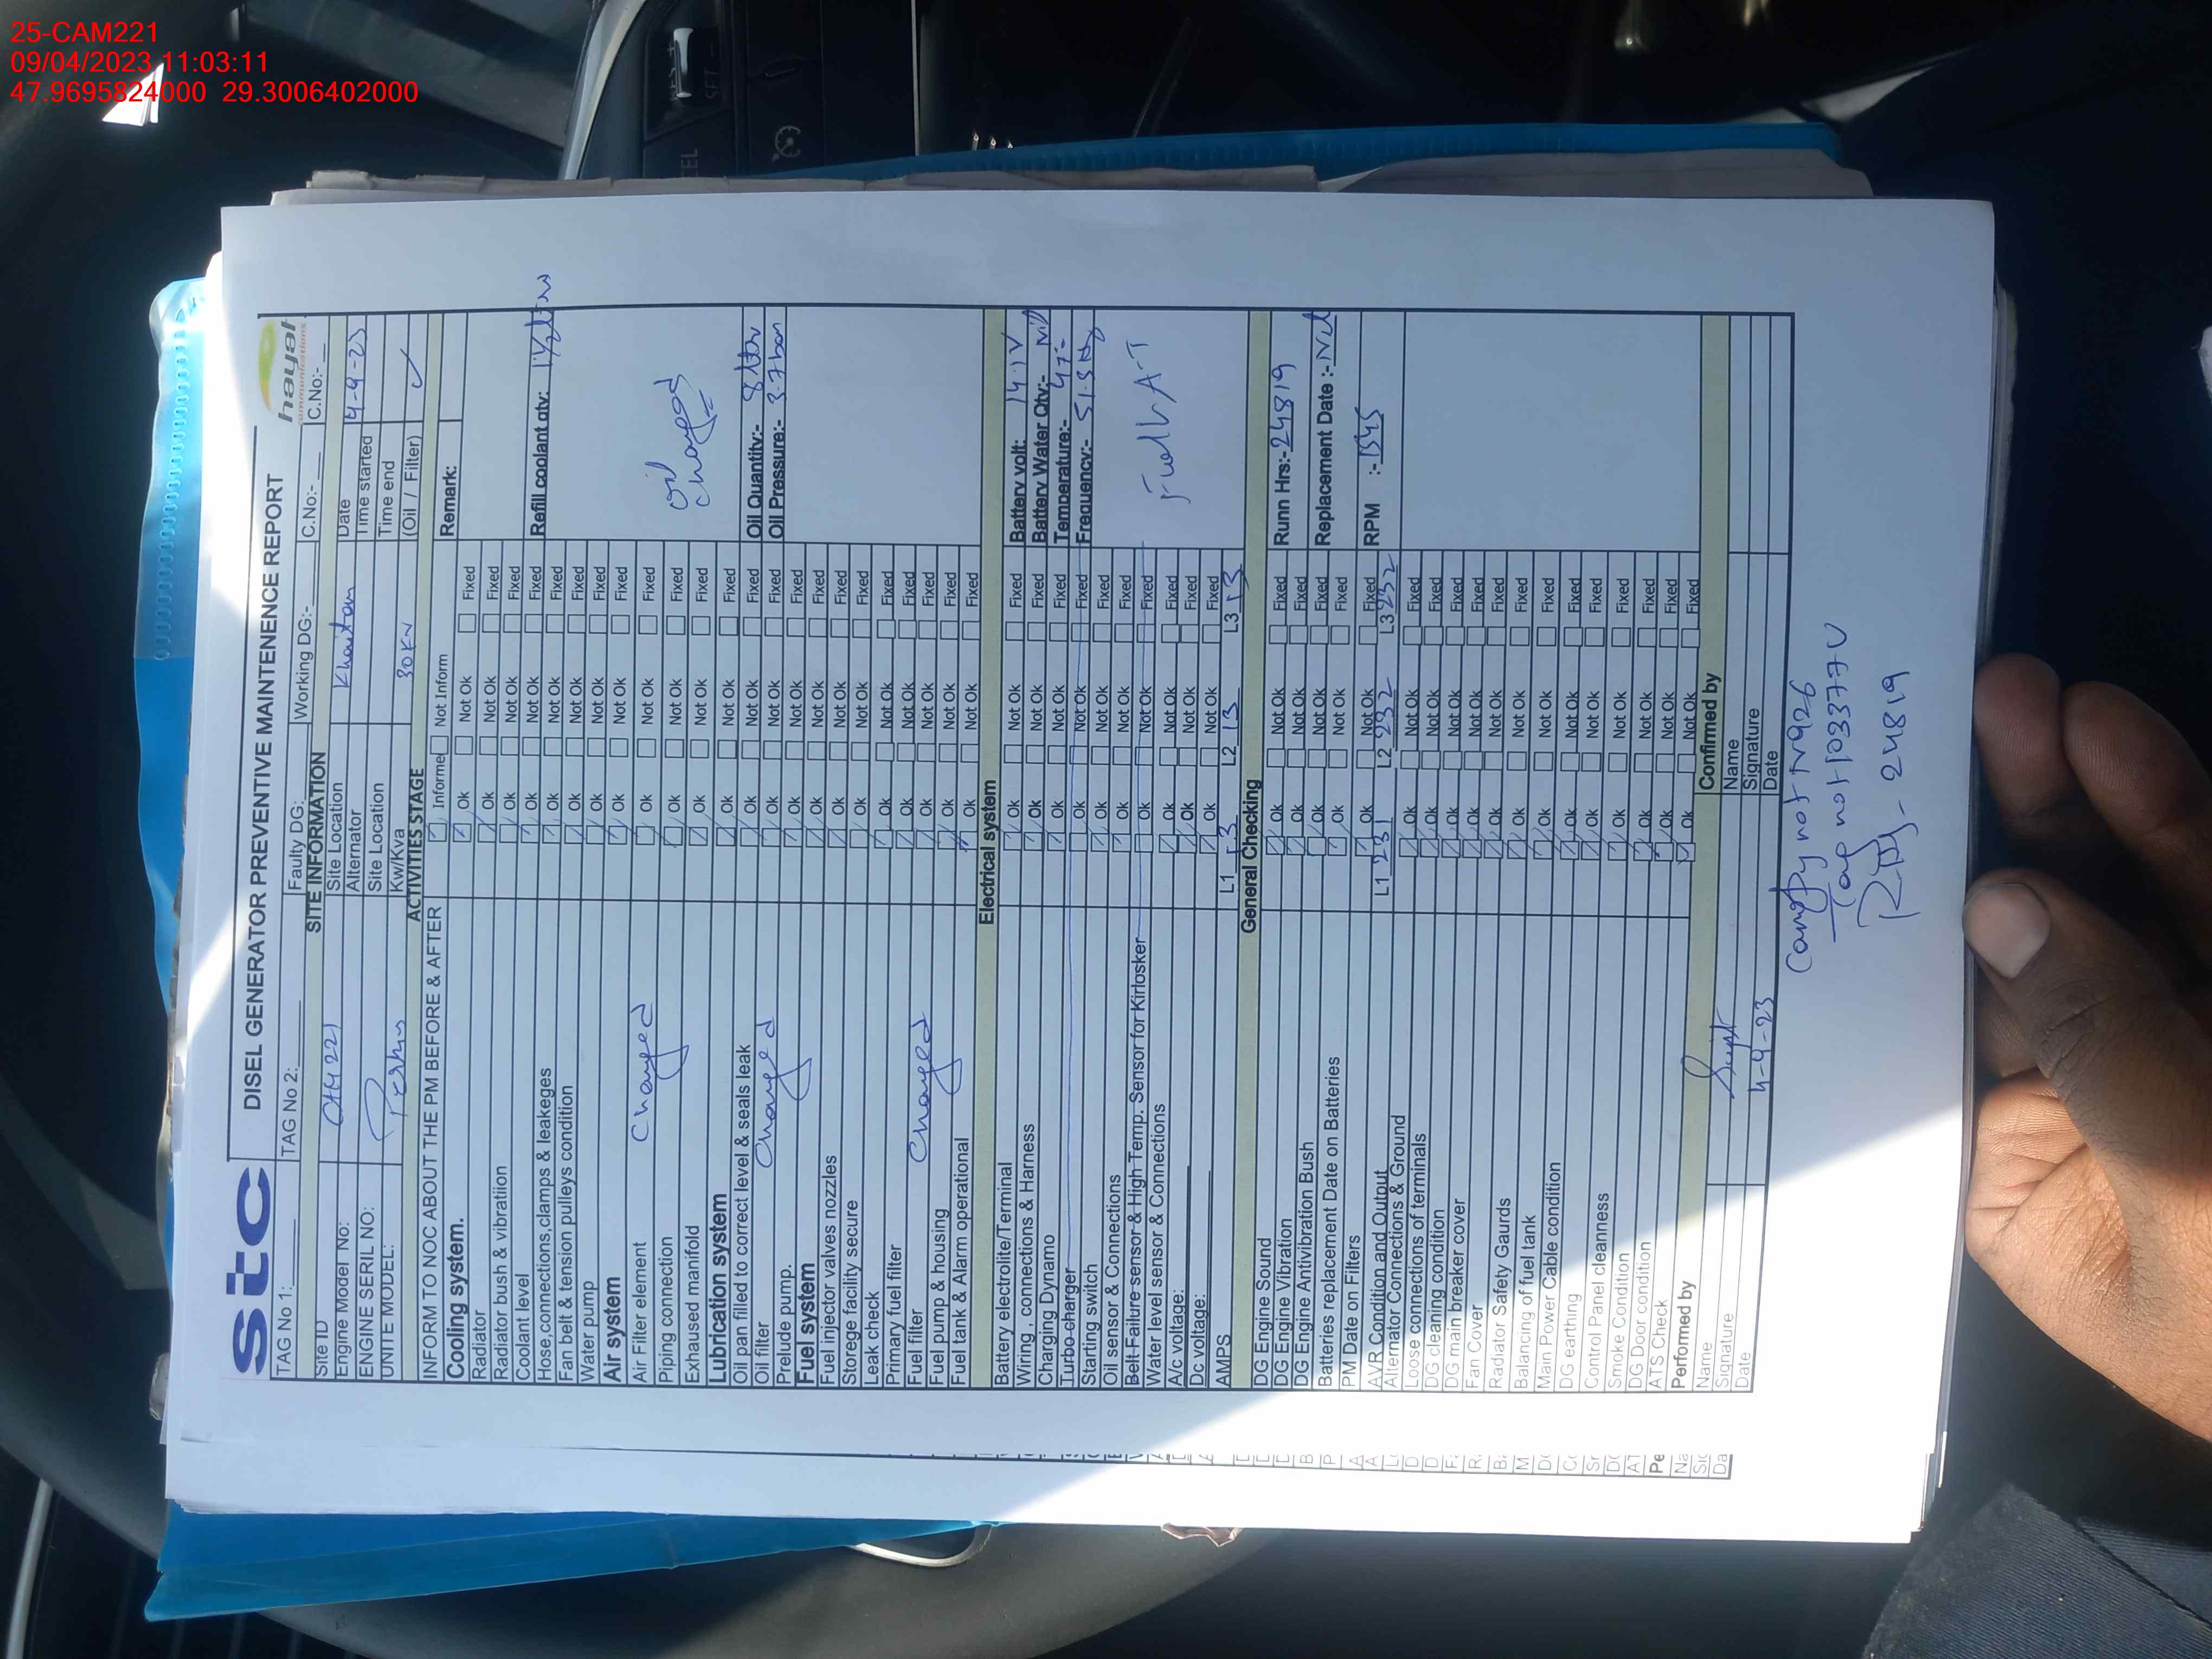 25-CAM221
09/04/2023 11:03:11
47.9695824000 29.3006402000
stc
DISEL GENERATOR PREVENTIVE MAINTENENCE REPORT
hayat
communications
TAG No 1:- TAG No 2: Faulty DG: Working DG:- C.No:- C.No:-
SITE INFORMATION
Site ID CAM 221 Site Location Khaitan Date 4-9-23
Engine Model No: Alternator Time started
ENGINE SERIL NO: Site Location Time end
UNITE MODEL: Perkins Kw/Kva 30KV (Oil / Filter) ✓
ACTIVITIES STAGE
INFORM TO NOC ABOUT THE PM BEFORE & AFTER Informe Not Inform Remark:
Cooling system.
Radiator Ok Not Ok Fixed
Radiator bush & vibratiion Ok Not Ok Fixed
Coolant level Ok Not Ok Fixed
Hose,connections,clamps & leakeges Ok Not Ok Fixed Refill coolant qty:
Fan belt & tension pulleys condition Ok Not Ok Fixed
Water pump Ok Not Ok Fixed
Air system
Air Filter element Changed Ok Not Ok Fixed
Piping connection Ok Not Ok Fixed Oil changed
Exhaused manifold Ok Not Ok Fixed
Lubrication system
Oil pan filled to correct level & seals leak Ok Not Ok Fixed Oil Quantity:- 8 ltr
Oil filter Changed Ok Not Ok Fixed Oil Pressure:- 3.7 bar
Prelude pump. Ok Not Ok Fixed
Fuel system
Fuel injector valves nozzles Ok Not Ok Fixed
Storege facility secure Ok Not Ok Fixed
Leak check Ok Not Ok Fixed
Primary fuel filter Ok Not Ok Fixed
Fuel filter Changed Ok Not Ok Fixed
Fuel pump & housing Ok Not Ok Fixed
Fuel tank & Alarm operational Ok Not Ok Fixed
Electrical system
Battery electrolite/Terminal Ok Not Ok Fixed Battery volt: 14.1V
Wiring , connections & Harness Ok Not Ok Fixed Battery Water Qty:- Nil
Charging Dynamo Ok Not Ok Fixed Temperature:- 47
Turbo charger Ok Not Ok Fixed Frequency:- 51.3 Hz
Starting switch Ok Not Ok Fixed
Oil sensor & Connections Ok Not Ok Fixed
Belt Failure sensor & High Temp. Sensor for Kirlosker Ok Not Ok Fixed
Water level sensor & Connections Ok Not Ok Fixed
A/c voltage: Ok Not Ok Fixed
Dc voltage: Ok Not Ok Fixed
AMPS L1 L2 13 L3
General Checking
DG Engine Sound Ok Not Ok Fixed Runn Hrs:- 24819
DG Engine Vibration Ok Not Ok Fixed
DG Engine Antivibration Bush Ok Not Ok Fixed
Batteries replacement Date on Batteries Ok Not Ok Fixed Replacement Date :-
PM Date on Filters
AVR Condition and Output Ok Not Ok Fixed RPM :- 1545
Alternator Connections & Ground L1 231 L2 232 L3 232
Loose connections of terminals Ok Not Ok Fixed
DG cleaning condition Ok Not Ok Fixed
DG main breaker cover Ok Not Ok Fixed
Fan Cover Ok Not Ok Fixed
Radiator Safety Gaurds Ok Not Ok Fixed
Balancing of fuel tank Ok Not Ok Fixed
Main Power Cable condition Ok Not Ok Fixed
DG earthing Ok Not Ok Fixed
Control Panel cleanness Ok Not Ok Fixed
Smoke Condition Ok Not Ok Fixed
DG Door condition Ok Not Ok Fixed
ATS Check Ok Not Ok Fixed
Performed by Confirmed by
Name Name
Signature Signature
Date 4-9-23 Date
24819